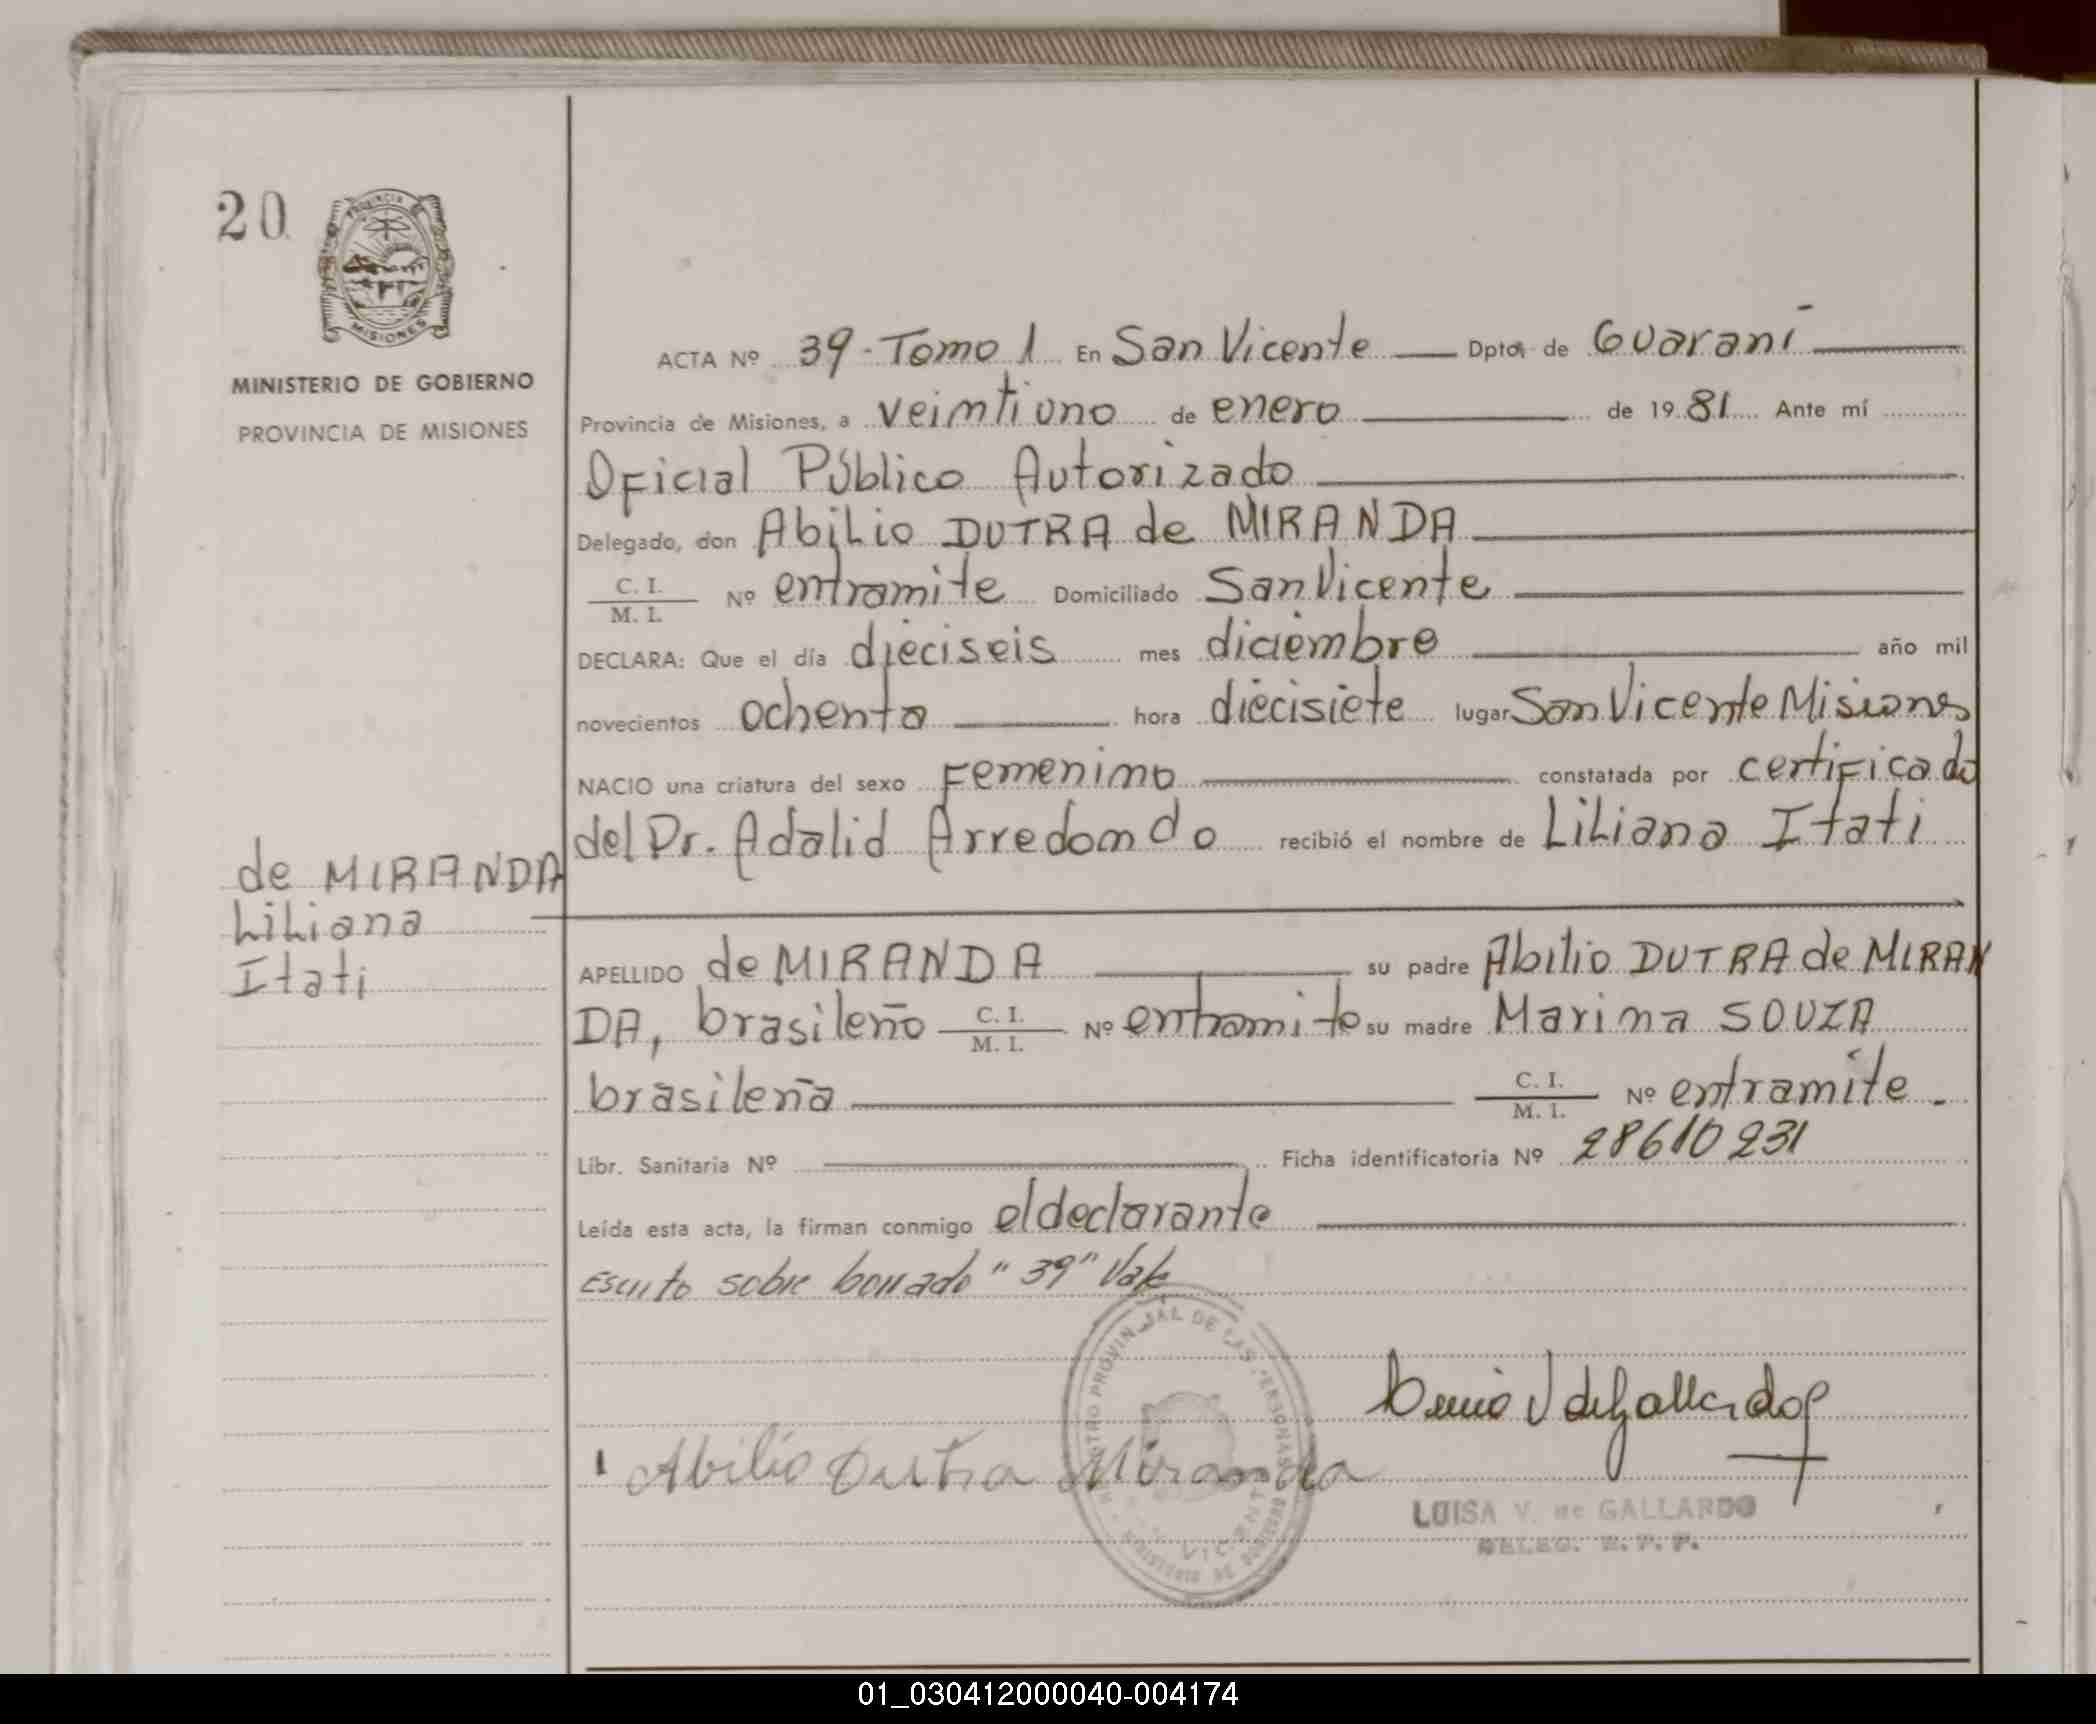 20
PROVINCIA DE
MISIONES
MINISTERIO DE GOBIERNO
PROVINCIA DE MISIONES
ACTA Nº 39 - Tomo 1 En San Vicente Dpto. de Guaraní
Provincia de Misiones, a veintiuno de enero de 1981 Ante mí
Oficial Público Autorizado
Delegado, don Abilio DUTRA de MIRANDA
C. I.
M. I. Nº entramite Domiciliado San Vicente
DECLARA: Que el día dieciseis mes diciembre año mil
novecientos ochenta hora diecisiete lugar San Vicente Misiones
NACIO una criatura del sexo Femenino constatada por certificado
del Dr. Adalid Arredondo recibió el nombre de Liliana Itati
de MIRANDA
Liliana
Itati
APELLIDO de MIRANDA su padre Abilio DUTRA de MIRAN
DA, brasileño C. I. M. I. Nº entramite su madre Marina SOUZA
brasileña C. I. M. I. Nº entramite -
Libr. Sanitaria Nº Ficha identificatoria Nº 28610231
Leída esta acta, la firman conmigo el declarante
Escrito sobre borrado "39" Vale
PROVINCIAL DE LAS PERSONAS
Abilio Dutra Miranda
LUISA V. de GALLARDO
01_030412000040-004174